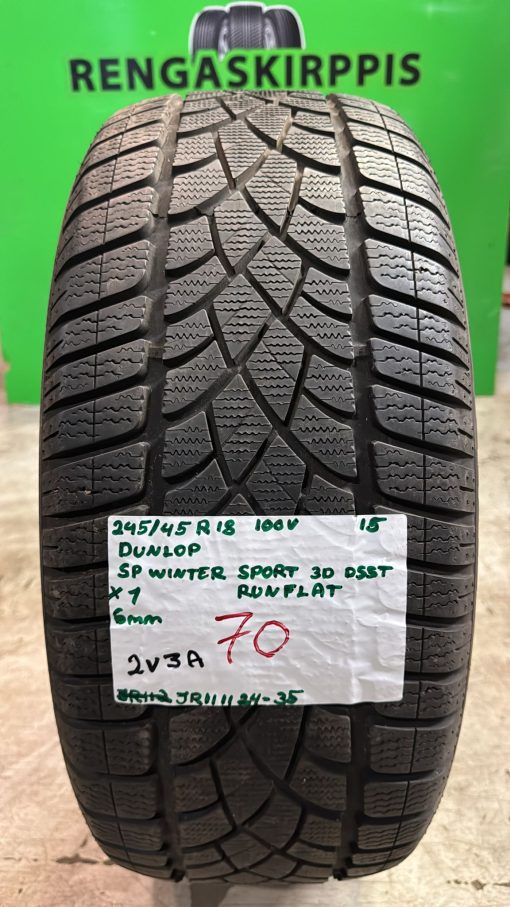 RENGASKIRPPIS
245/45 R 18 100V 15
DUNLOP
SP WINTER SPORT 3D DSST
X 1 RUNFLAT
6mm 70
2V3A
JR1111 24-35